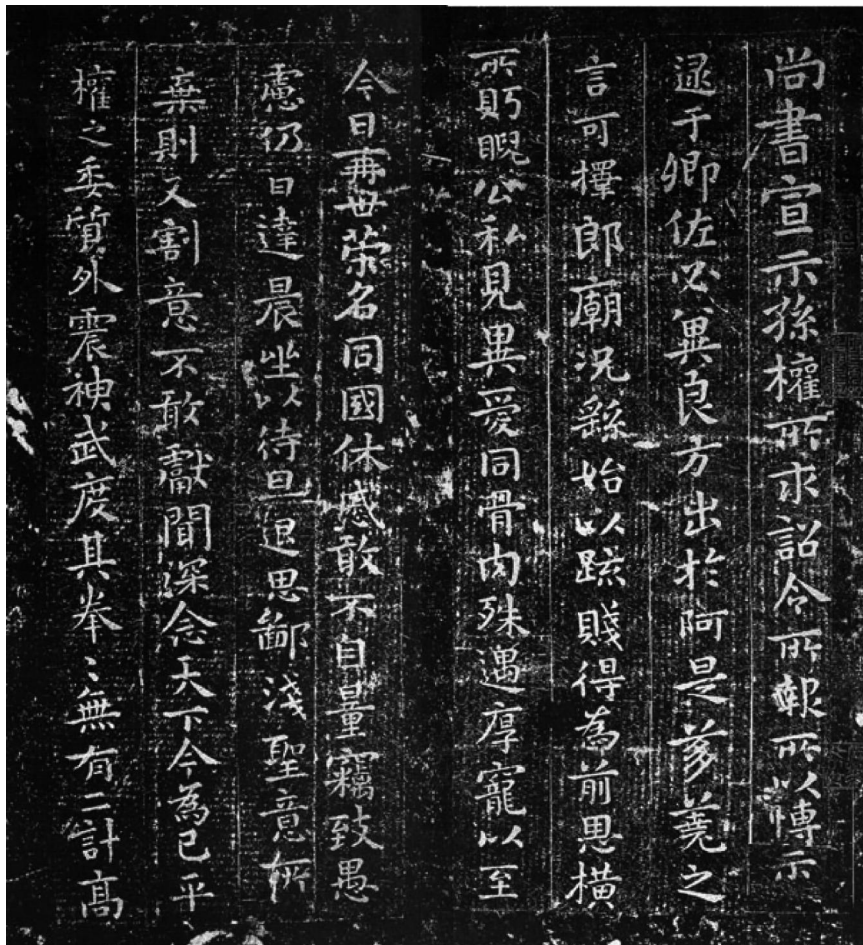 尚書宣示孫權所求詔令所報所以博示
逮于卿佐必冀良方出於阿是芻蕘之
言可擇郎廟況繇始以疏賤得為前恩橫
所䀢睨公私見異愛同骨肉殊遇厚寵以至
今日再世榮名同國休慼敢不自量竊致愚
慮仍日達晨坐以待旦退思鄙淺聖意所
棄則又割意不敢獻聞深念天下今為已平
權之委質外震神武度其拳〻無有二計高